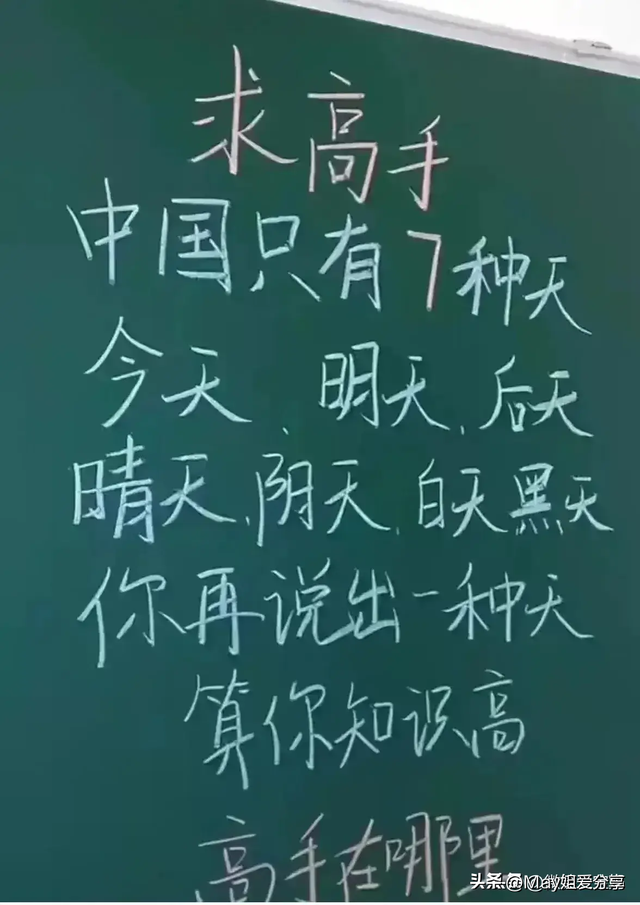 求高手
中国只有7种天
今天、明天、后天
晴天、阴天、白天黑天
你再说出一种天
算你知识高
高手在哪里
头条